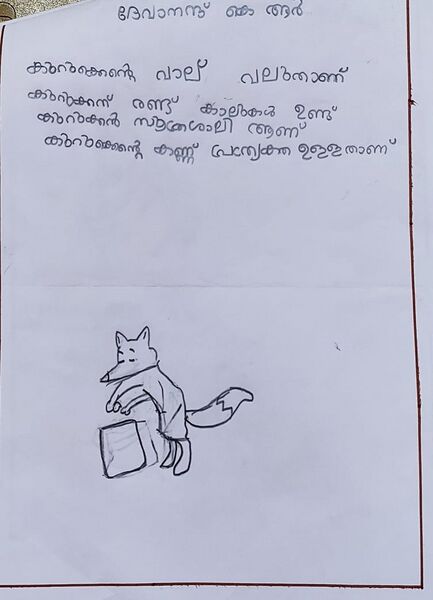 ദേവാനന്ദ് കെ ആർ
കുറുക്കന്റെ വാല് വലുതാണ്
കുറുക്കന് രണ്ട് കാലുകൾ ഉണ്ട്
കുറുക്കൻ സൂത്രശാലി ആണ്
കുറുക്കന്റെ കണ്ണ് പ്രത്യേകത ഉള്ളതാണ്